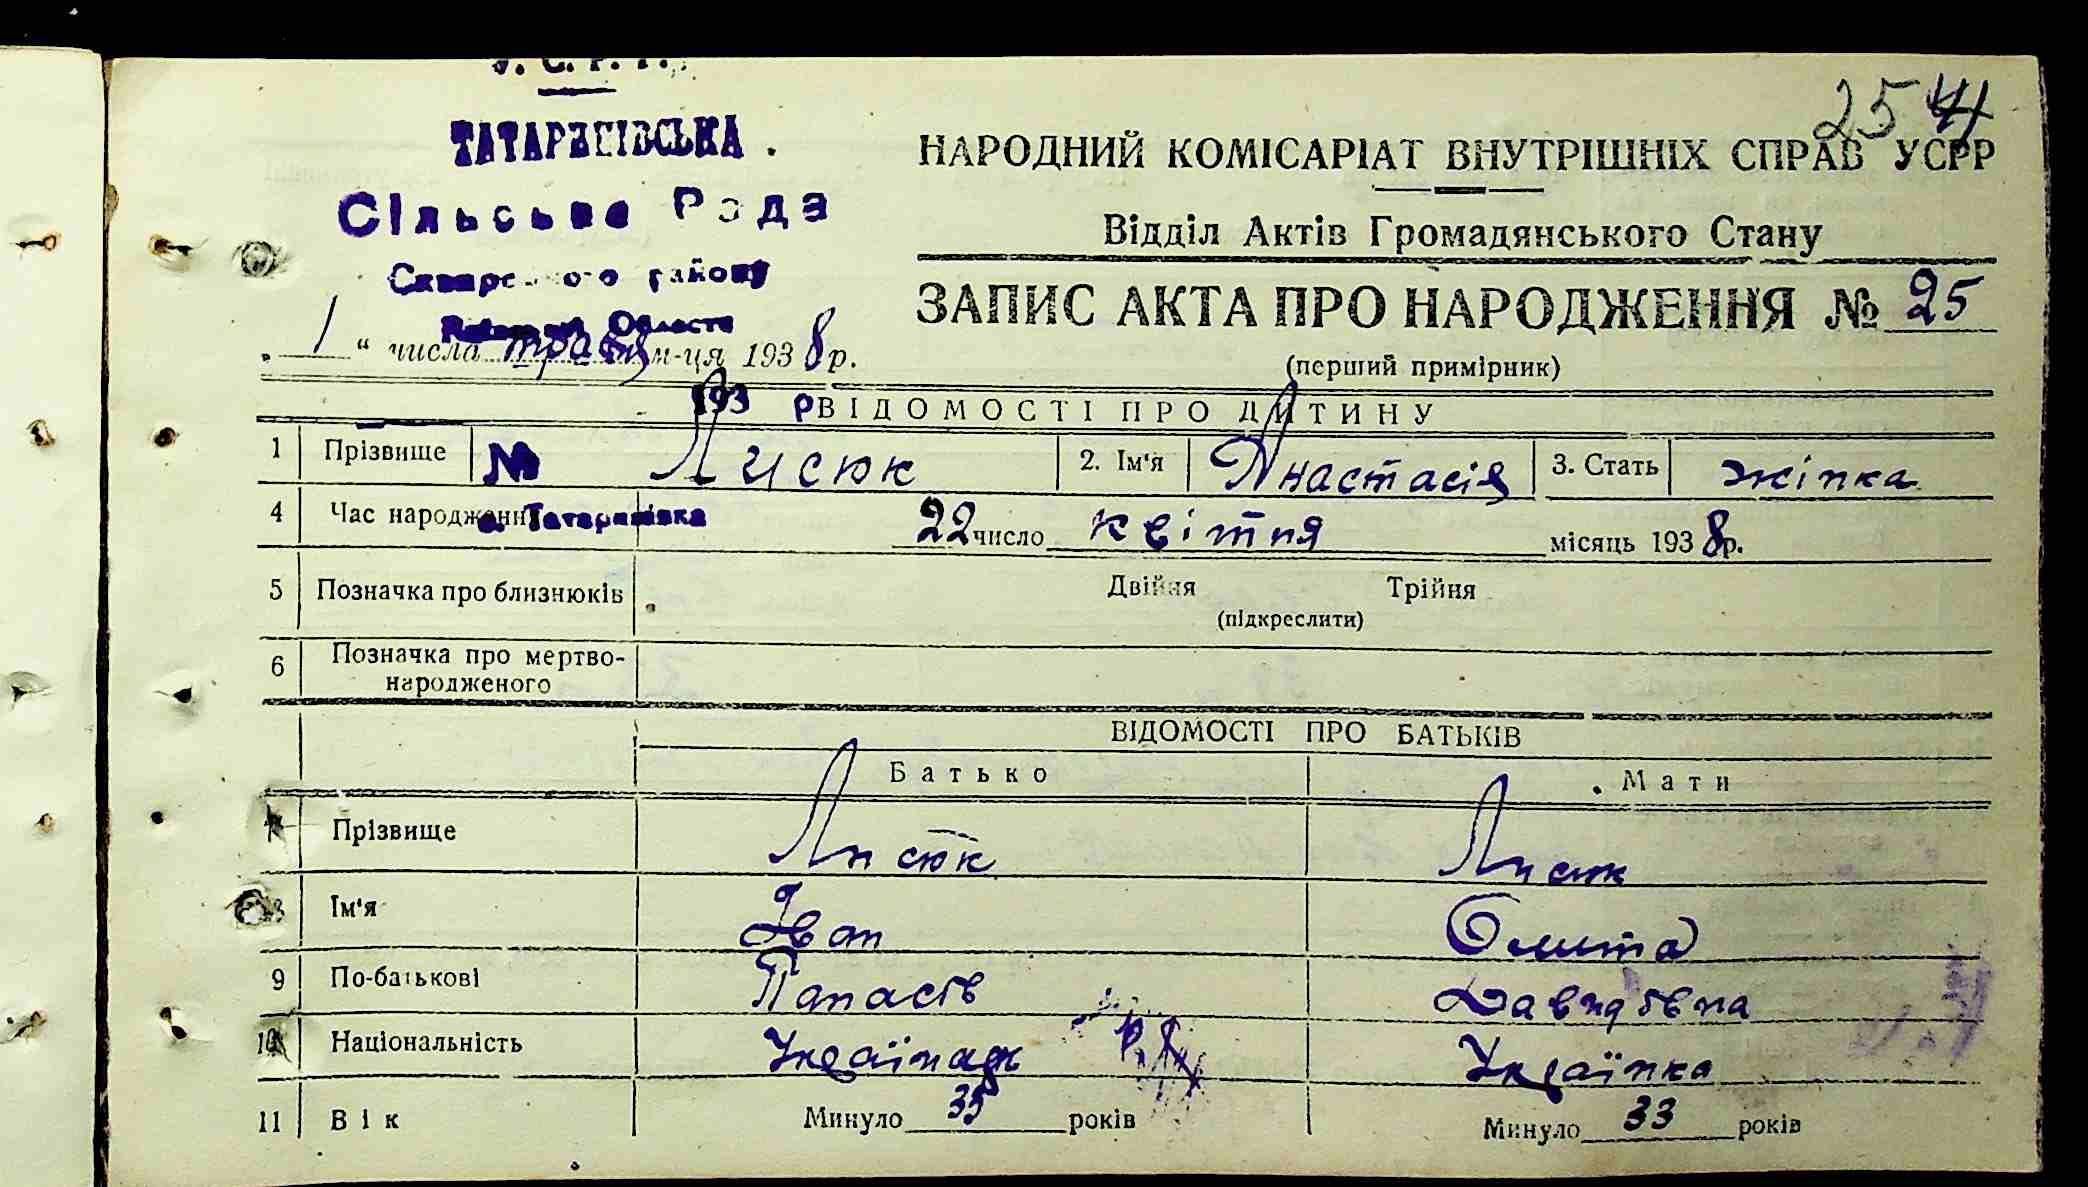 У. С. Р. Р.
25
ТАТАРИНІВСЬКА
НАРОДНИЙ КОМІСАРІАТ ВНУТРІШНІХ СПРАВ УСРР
Сільська Рада
Відділ Актів Громадянського Стану
Сквирського району
Київської Області
ЗАПИС АКТА ПРО НАРОДЖЕННЯ № 25
„ 1 “ числа травня м-ця 1938 р.
(перший примірник)
193 р
ВІДОМОСТІ ПРО ДИТИНУ
1 Прізвище № Лисюк 2. Ім'я Анастасія 3. Стать жінка
4 Час народження с. Татаринівка 22 число квітня місяць 1938 р.
5 Позначка про близнюків Двійня Трійня
(підкреслити)
6 Позначка про мертво-
народженого
ВІДОМОСТІ ПРО БАТЬКІВ
Батько Мати
7 Прізвище Лисюк Лисюк
8 Ім'я Іван
9 По-батькові Панасів Давидівна
10 Національність Українець Українка
11 Вік Минуло 35 років Минуло 33 років